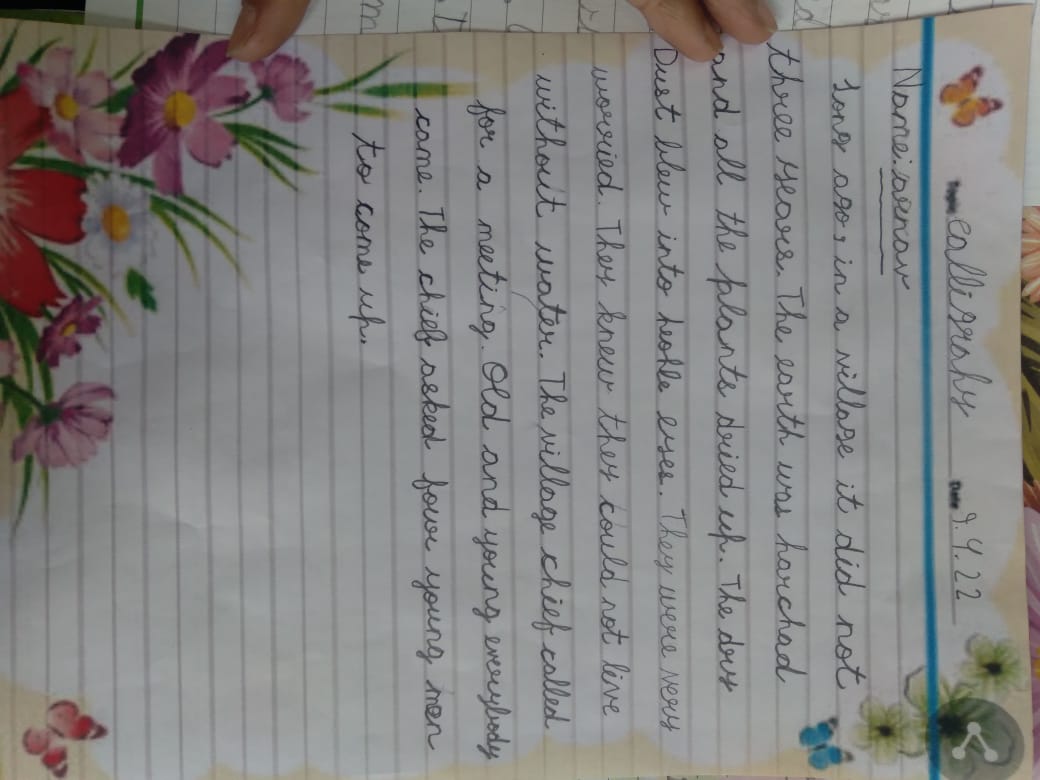 Topic calligrahy Date 9.4.22
Name: arnav
Long ago, in a village it did not
three years. The earth was harchad
and all the plants dried up. The dry
Dust blew into heohle eyes. They were very
worried. They knew they could not live
without water. The village chief called
for a meeting. Old and young everybody
came. The chief asked four young men
to come up.